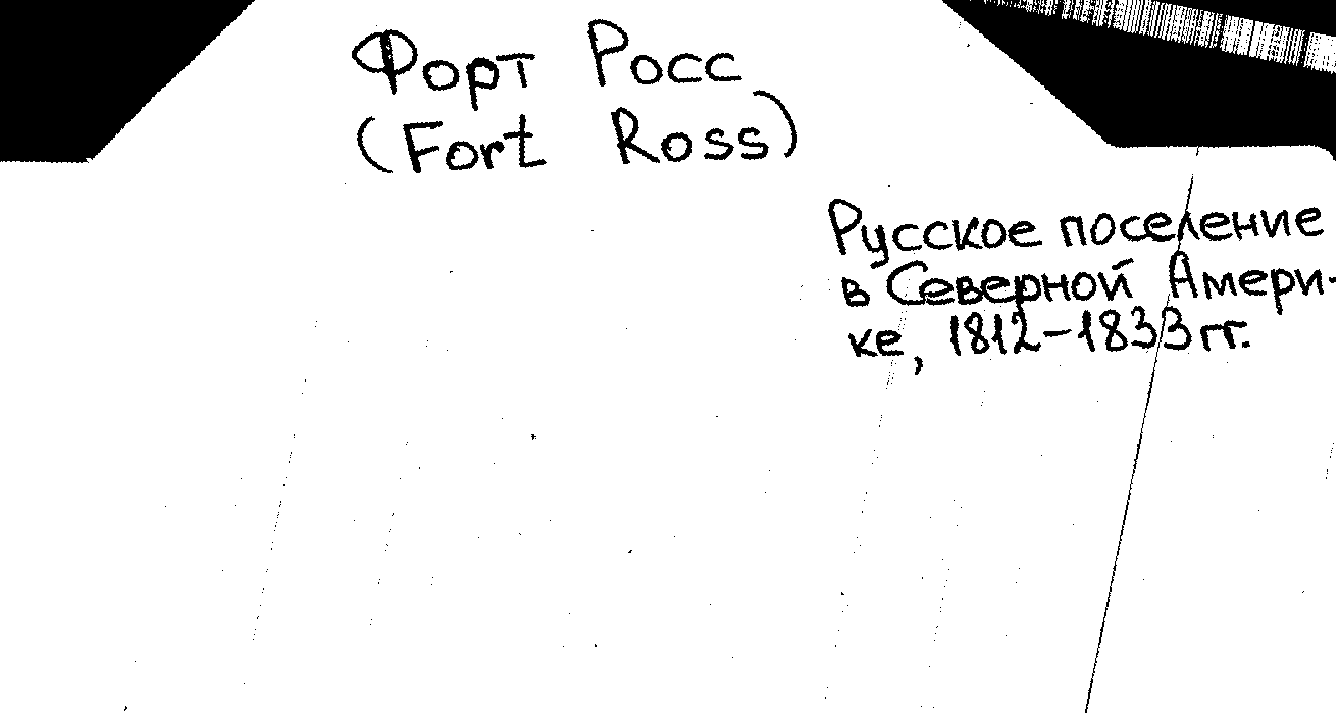 Форт Росс
(Fort Ross)
Русское поселение
в Северной Амери-
ке, 1812-1833 гг.